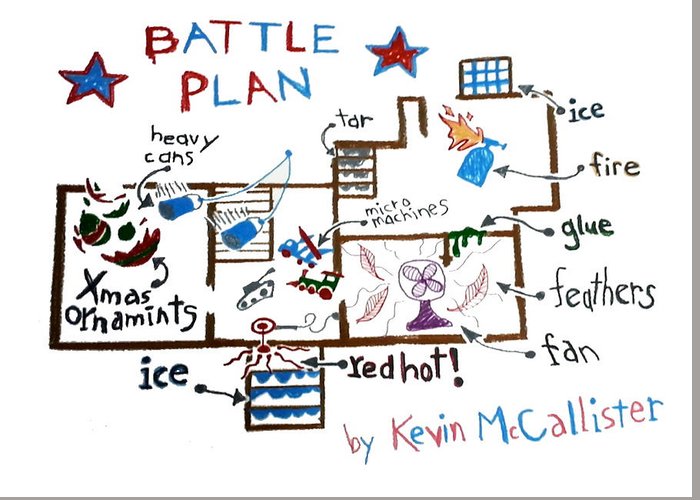 BATTLE
PLAN
ice
tar
heavy
cans
fire
micro
machines
glue
Xmas
ornamints
feathers
fan
red hot!
ice
by Kevin McCallister